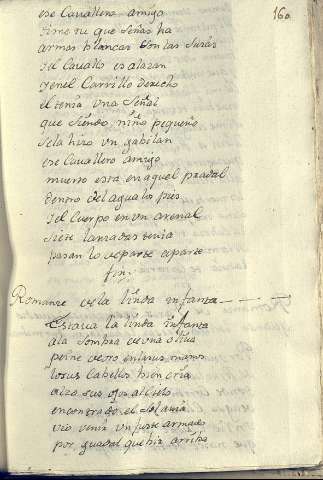 160
ese Cavallero amigo
dime tu que señas ha
armas blancas son sus señas
y el Cavallo es alazan
y en el Carrillo derecho
el tenia una Señal
que siendo niño pequeño
se la hizo un gabilan
ese Cavallero amigo
muerto esta en aquel pradal
dentro del agua los pies
y el Cuerpo en un arenal
siete lanzadas tenia
pasan lo de parte a parte
fin
Romanze de la linda infanta
Estava la linda infanta
a la sombra de una oliva
peine de oro en las sus manos
los sus Cabellos bien cria
alzo sus ojos al cielo
en contra do el Sol salia
vio venir un fuste armado
por guadalquebir arriba